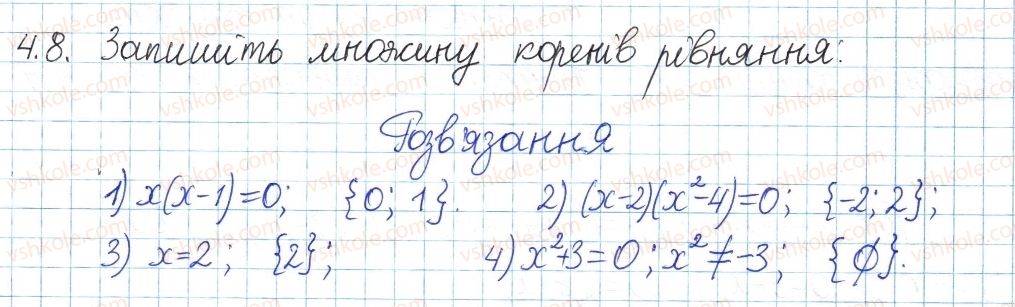 4.8. Запишіть множину коренів рівняння:
Розв'язання
1) x(x-1)=0; {0; 1}. 2) (x-2)(x²-4)=0; {-2; 2};
3) x=2; {2}; 4) x²+3=0; x²≠-3; {∅}.